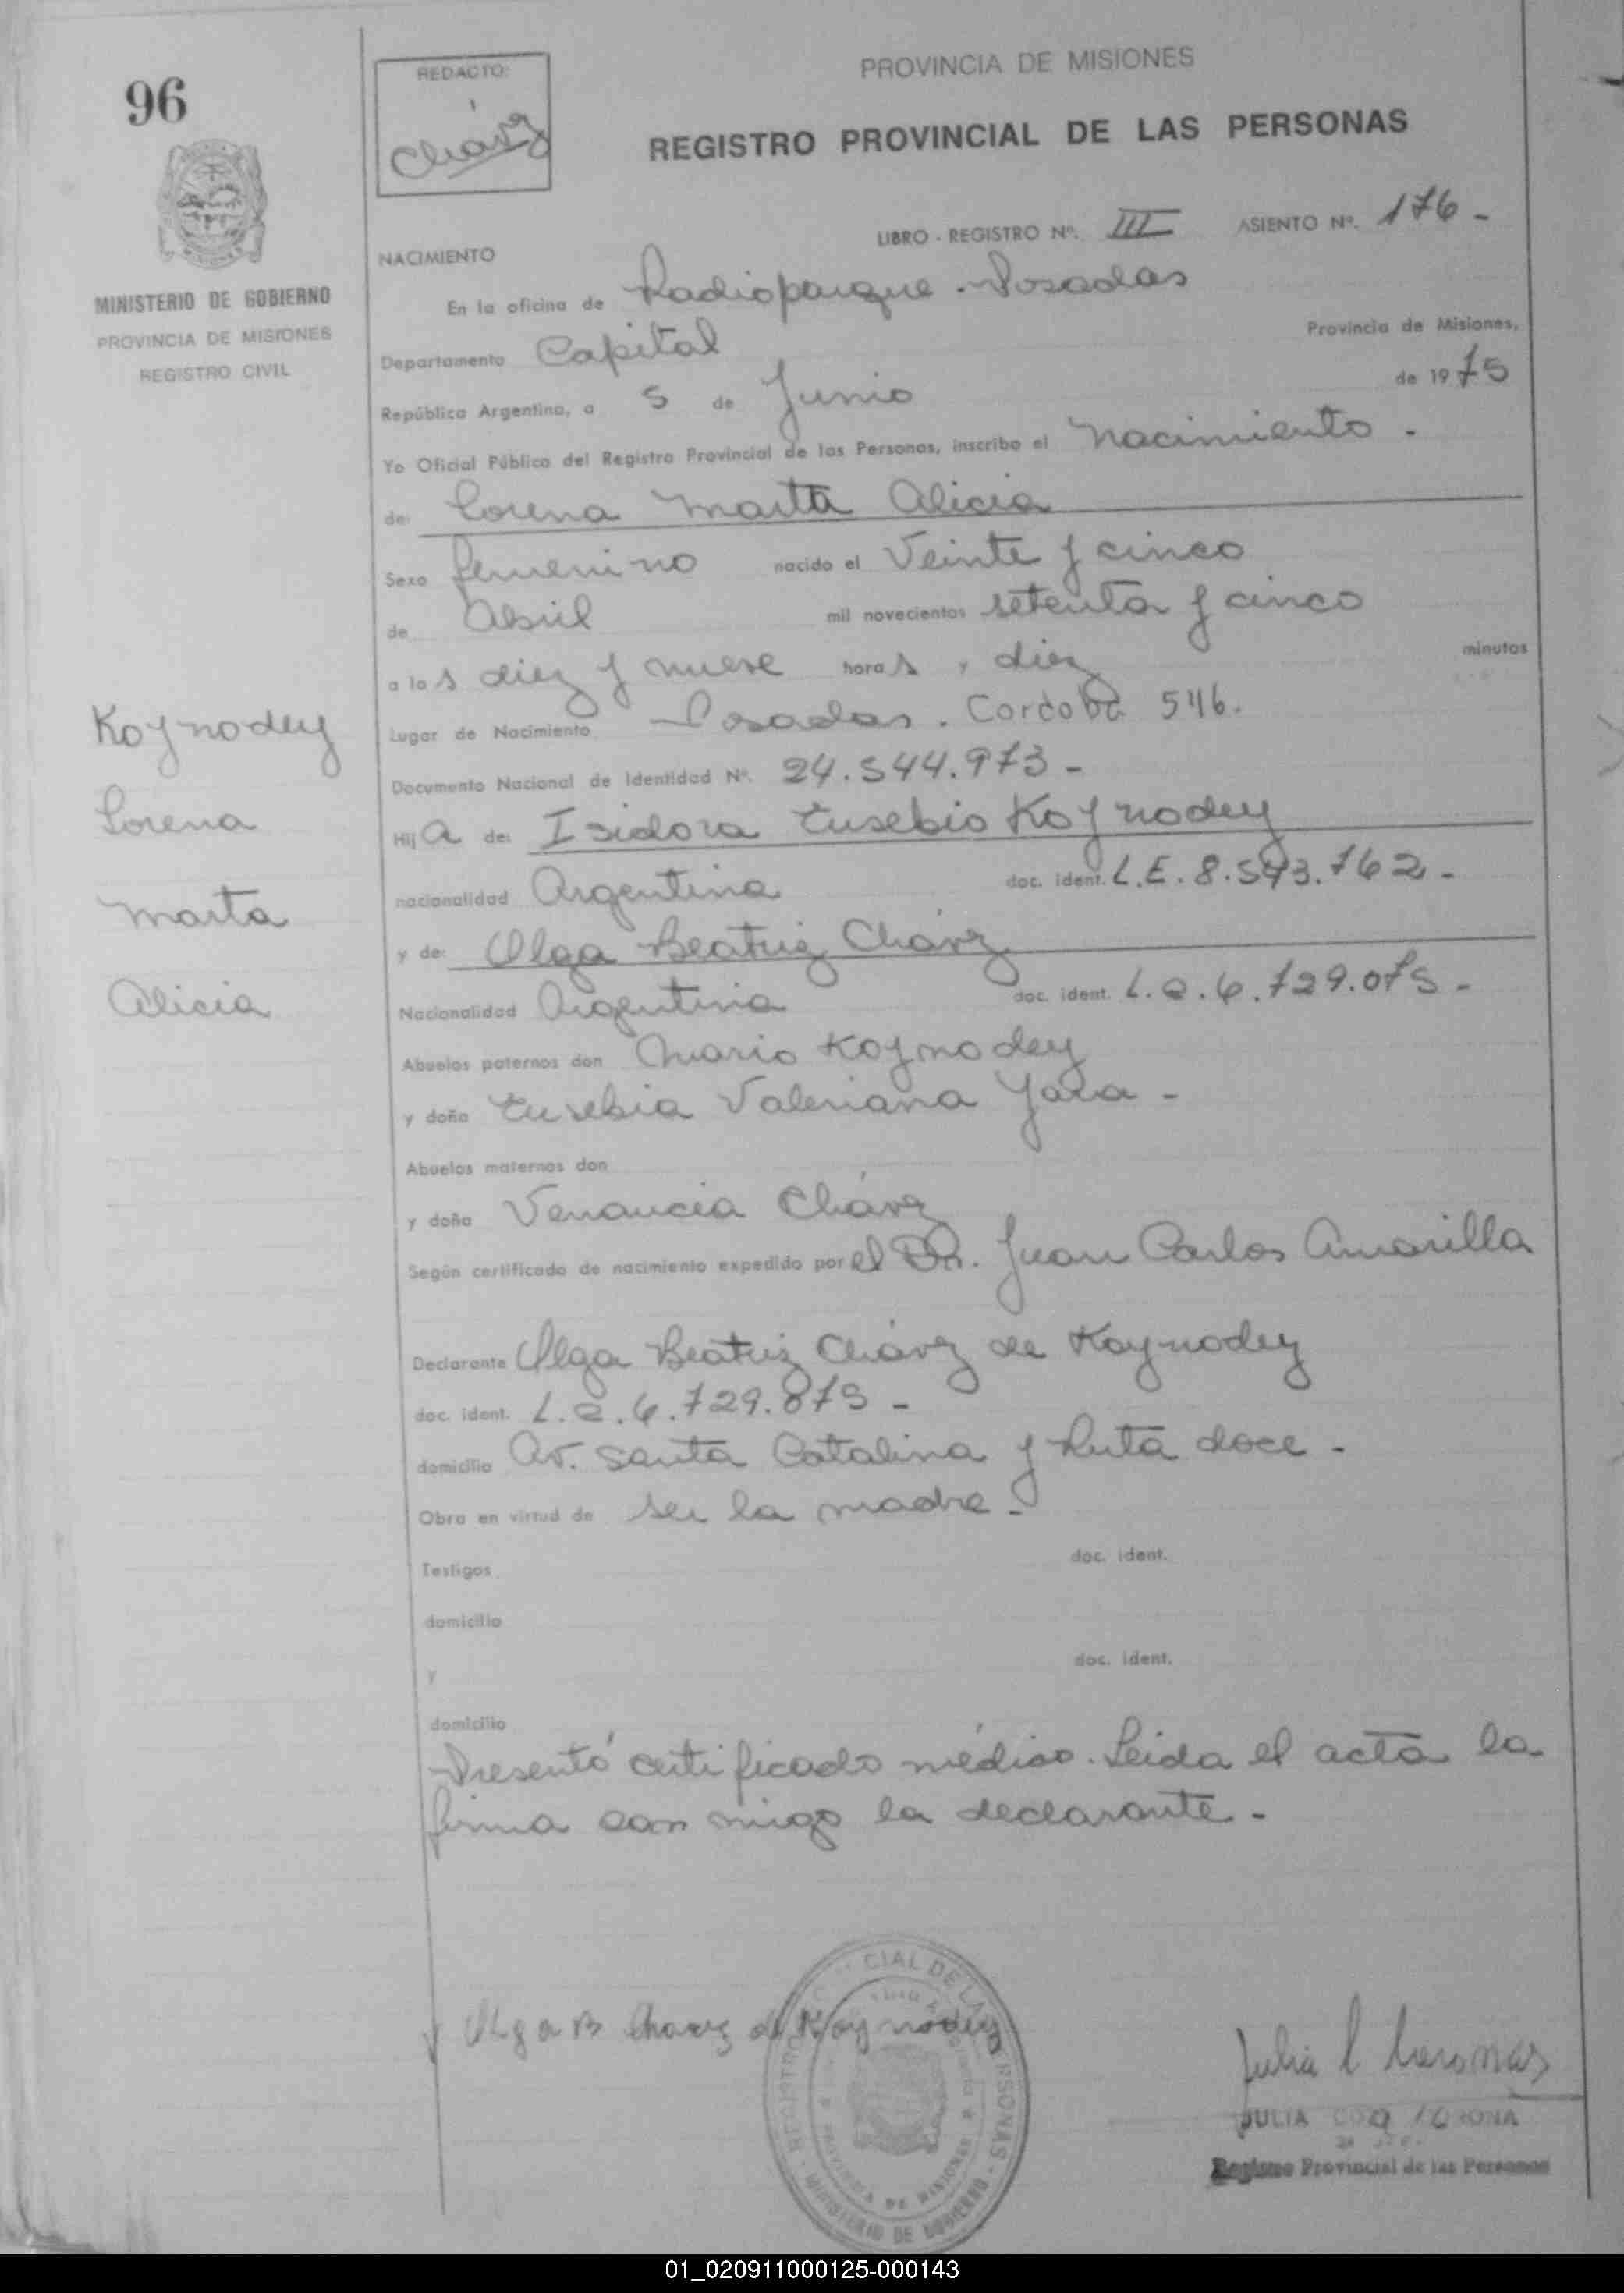 96
REDACTO:
Chávez
PROVINCIA DE MISIONES
REGISTRO PROVINCIAL DE LAS PERSONAS
LIBRO - REGISTRO Nº. III ASIENTO Nº. 176 -
MINISTERIO DE GOBIERNO
PROVINCIA DE MISIONES
REGISTRO CIVIL
NACIMIENTO
En la oficina de Radioparque - Posadas
Departamento Capital Provincia de Misiones,
República Argentina, a 5 de Junio de 1975
Yo Oficial Público del Registro Provincial de las Personas, inscribo el Nacimiento -
de: Lorena Marta Alicia
Sexo femenino nacido el Veinte y cinco
de Abril mil novecientos setenta y cinco
a las diez y nueve horas y diez minutos
Lugar de Nacimiento Posadas. Cordoba 546.
Documento Nacional de Identidad Nº. 24.544.973 -
Hija de: Isidoro Eusebio Koynodey
nacionalidad Argentina doc. ident. L.E. 8.543.762 -
y de: Olga Beatriz Chávez
Nacionalidad Argentina doc. ident. L.C. 6.729.075 -
Abuelos paternos don Mario Koynodey
y doña Eusebia Valeriana Jara -
Abuelos maternos don
y doña Venancia Chávez
Según certificado de nacimiento expedido por el Dr. Juan Carlos Amarilla
Declarante Olga Beatriz Chávez de Koynodey
doc. ident. L.C. 6.729.875 -
domicilio Av. Santa Catalina y Ruta doce -
Obra en virtud de ser la madre -
Testigos doc. ident.
domicilio
y doc. ident.
domicilio
Presentó certificado médico. Leida el acta la
firma con migo la declarante -
Koynodey
Lorena
Marta
Alicia
Olga B Chavez de Koynodey
REGISTRO CIAL DE LAS PERSONAS
PROVINCIA DE MISIONES
MINISTERIO DE GOBIERNO
Julia
JULIA
Registro Provincial de las Personas
01_020911000125-000143